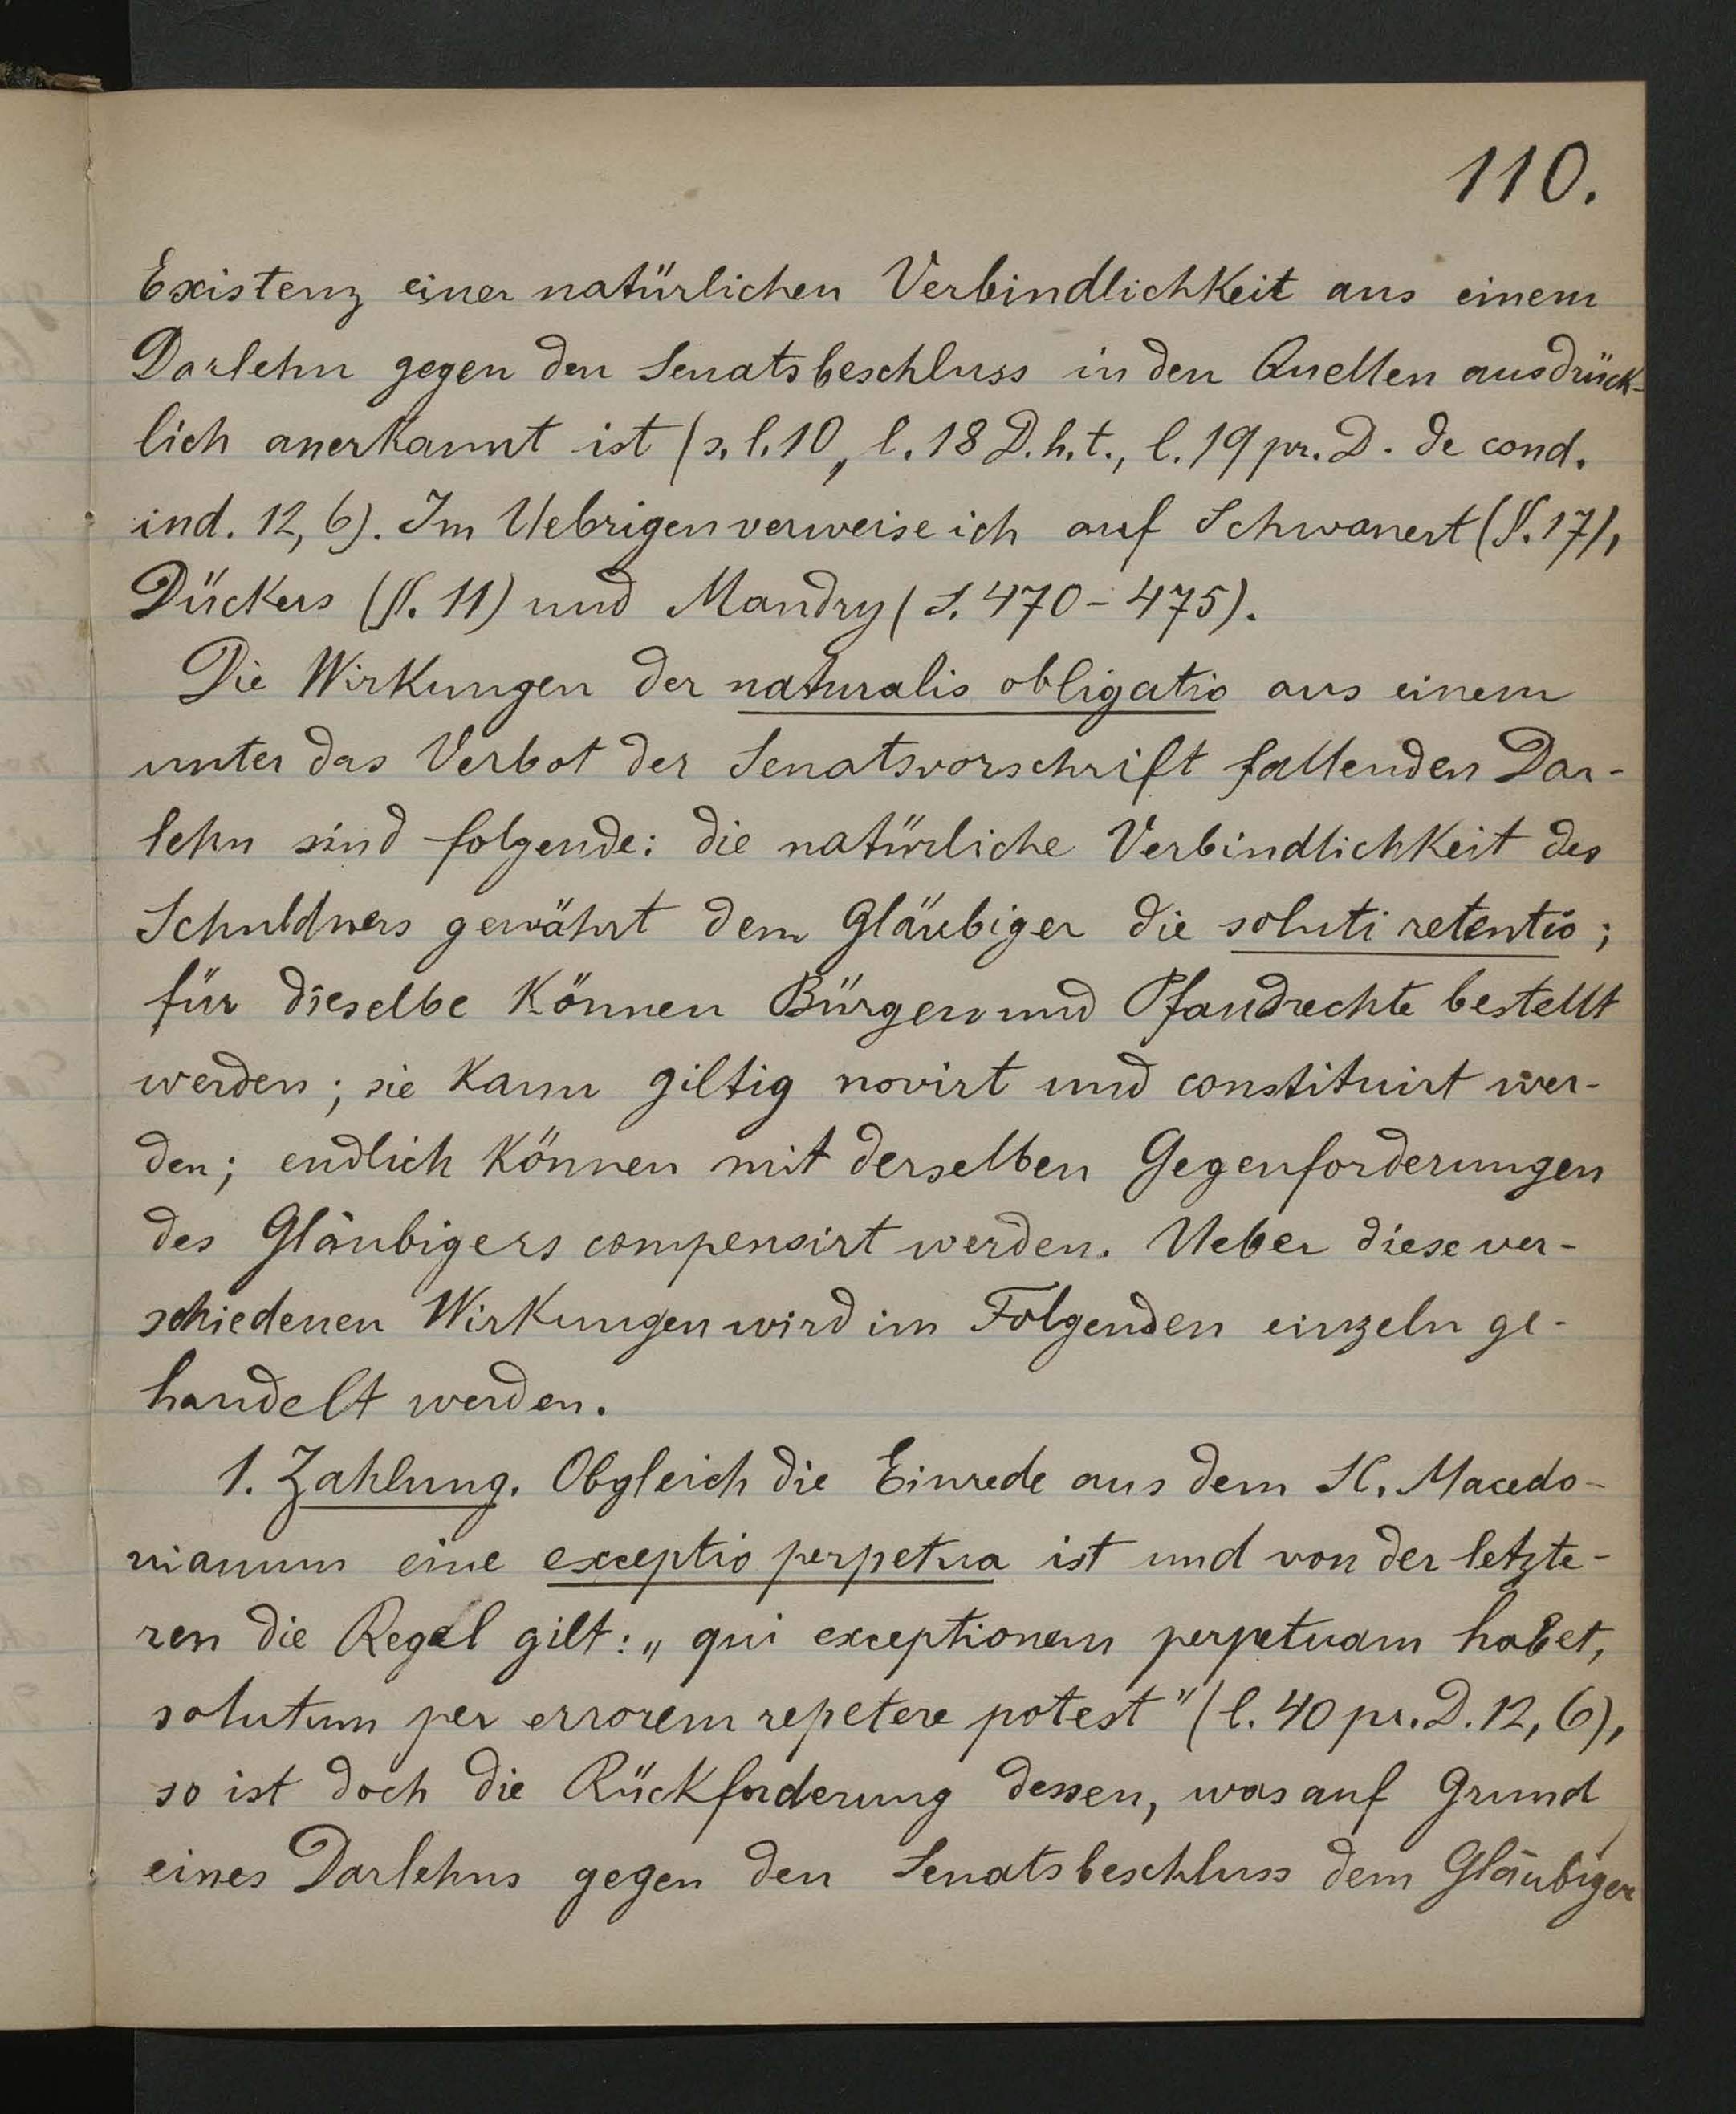 110.
Existenz einer natürlichen Verbindlichkeit aus einem
Darlehn gegen den Senatsbeschluss in den Quellen ausdrück-
lich anerkannt ist (s. l. 10, l. 18 D. h. t., l. 19 pr. D. de cond.
ind. 12, 6). Im Uebrigen verweise ich auf Schwanert (§. 17),
Dückers (§. 11) und Mandry (S. 470 - 475).
Die Wirkungen der naturalis obligatio aus einem
unter das Verbot der Senatsvorschrift fallenden Dar-
lehn sind folgende: die natürliche Verbindlichkeit des
Schuldners gewährt dem Gläubiger die soluti retentio;
für dieselbe können Bürgen und Pfandrechte bestellt
werden; sie kann giltig novirt und constituirt wer-
den; endlich können mit derselben Gegenforderungen
des Gläubigers compensirt werden. Ueber diese ver-
schiedenen Wirkungen wird im Folgenden einzeln ge-
handelt werden.
1. Zahlung. Obgleich die Einrede aus dem SC. Macedo-
nianum eine exceptio perpetua ist und von der letzte-
ren die Regel gilt: „qui exceptionem perpetuam habet,
solutum per errorem repetere potest" (l. 40 pr. D. 12, 6),
so ist doch die Rückforderung dessen, was auf Grund
eines Darlehns gegen den Senatsbeschluss dem Gläubiger